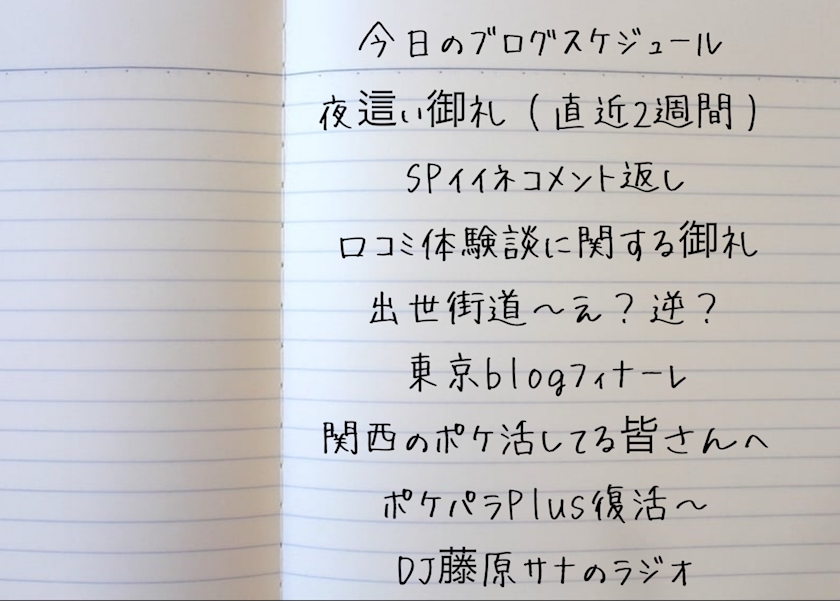 今日のブログスケジュール
夜這い御礼(直近2週間)
SPイイネコメント返し
口コミ体験談に関する御礼
出世街道〜え?逆?
東京blogフィナーレ
関西のポケ活してる皆さんへ
ポケパラPlus復活〜
DJ藤原サナのラジオ